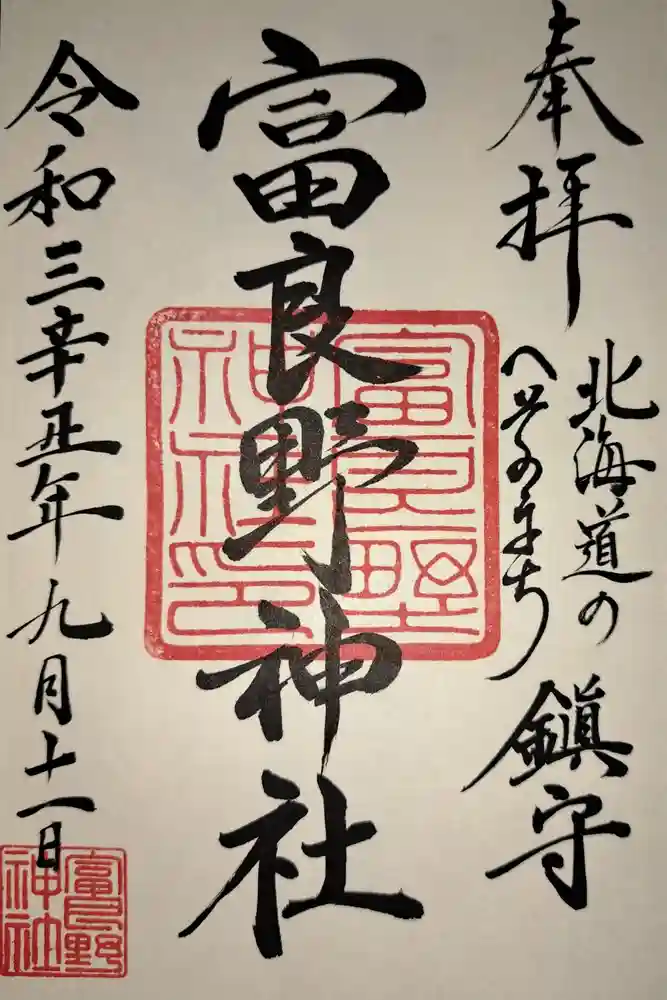 奉拝
北海道の
へそのまち
鎮守
富良野神社
富良野
神社印
令和三辛丑年九月十一日
富良野
神社